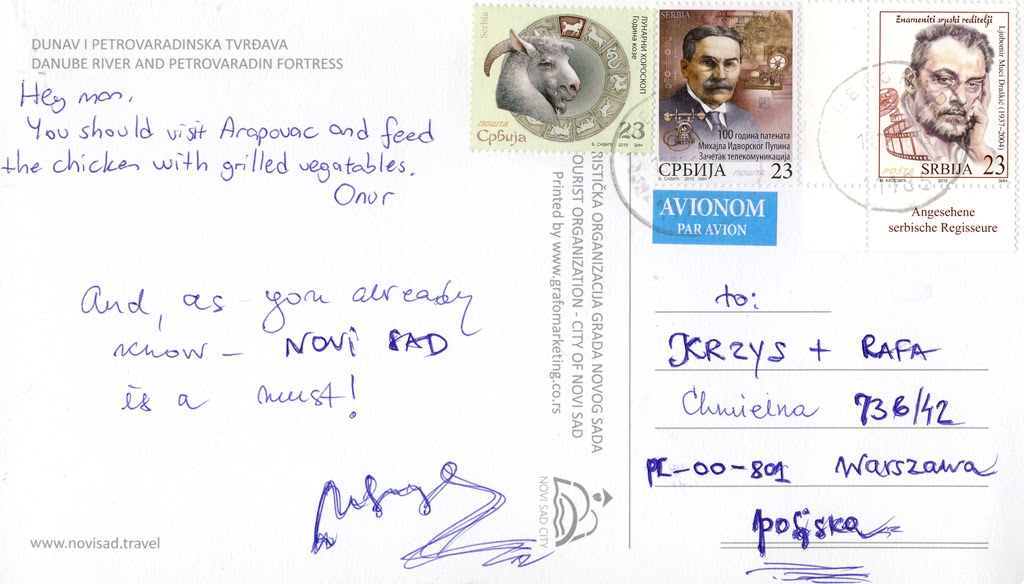 DUNAV I PETROVARADINSKA TVRĐAVA
DANUBE RIVER AND PETROVARADIN FORTRESS
Hey man,
You should visit Arapovac and feed
the chicken with grilled vegatables.
Onur
And, as you already
know – NOVI SAD
is a must!
www.novisad.travel
RISTIČKA ORGANIZACIJA GRADA NOVOG SADA
OURIST ORGANIZATION - CITY OF NOVI SAD
Printed by www.grafomarketing.co.rs
NOVI SAD CITY
Serbia
ЛУНАРНИ ХОРОСКОП
Година козе
ПОШТА
Србија
23
Б. САВИЋ 2015 ЗИН
SERBIA
100 година патената
Михајла Идворског Пупина
Зачетак телекомуникација
ПОШТА
СРБИЈА 23
Б. САВИЋ 2015 ЗИН
Znameniti srpski reditelji
Ljubomir Muci Draškić (1937–2004)
POŠTA
SRBIJA 23
2015
Angesehene
serbische Regisseure
AVIONOM
PAR AVION
to:
KRZYS + RAFA
Chmielna 736/42
PL-00-801 Warszawa
poljska